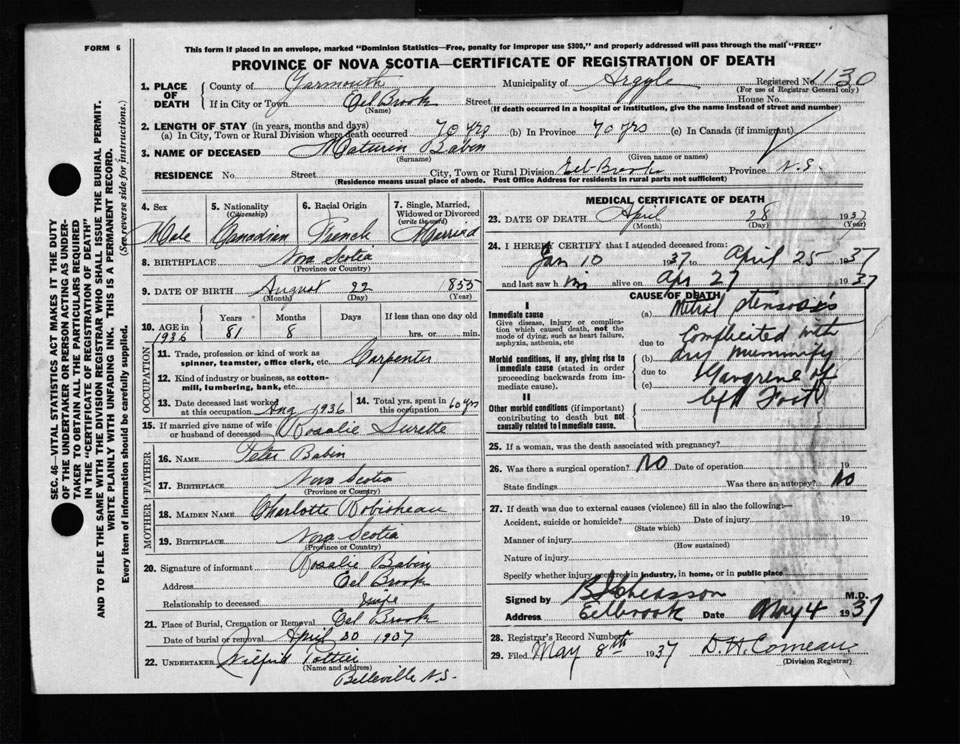 FORM 6
This form if placed in an envelope, marked "Dominion Statistics—Free, penalty for improper use $300," and properly addressed will pass through the mail "FREE"
PROVINCE OF NOVA SCOTIA—CERTIFICATE OF REGISTRATION OF DEATH
1. PLACE OF DEATH County of Yarmouth Municipality of Argyle Registered No. 1130
(For use of Registrar General only)
If in City or Town Eel Brook Street House No.
(Name) (If death occurred in a hospital or institution, give the name instead of street and number)
2. LENGTH OF STAY (in years, months and days)
(a) In City, Town or Rural Division where death occurred 70 yrs (b) In Province 70 yrs (c) In Canada (if immigrant)
3. NAME OF DECEASED Maturin Babin
(Surname) (Given name or names)
RESIDENCE No Street City, Town or Rural Division Eel-Brook Province N.S.
(Residence means usual place of abode. Post Office Address for residents in rural parts not sufficient)
SEC. 46—VITAL STATISTICS ACT MAKES IT THE DUTY
OF THE UNDERTAKER OR PERSON ACTING AS UNDER-
TAKER TO OBTAIN ALL THE PARTICULARS REQUIRED
IN THE "CERTIFICATE OF REGISTRATION OF DEATH"
AND TO FILE THE SAME WITH THE DIVISION REGISTRAR WHO SHALL ISSUE THE BURIAL PERMIT.
WRITE PLAINLY WITH UNFADING INK. THIS IS A PERMANENT RECORD.
Every item of information should be carefully supplied. (See reverse side for instructions.)
4. Sex 5. Nationality (Citizenship) 6. Racial Origin 7. Single, Married, Widowed or Divorced (write the word)
Male Canadian French Married
8. BIRTHPLACE Nova Scotia
(Province or Country)
9. DATE OF BIRTH August 22 1855
(Month) (Day) (Year)
10. AGE in Years Months Days If less than one day old
1936 81 8 hrs. or min.
OCCUPATION
11. Trade, profession or kind of work as spinner, teamster, office clerk, etc. Carpenter
12. Kind of industry or business, as cotton-mill, lumbering, bank, etc.
13. Date deceased last worked at this occupation Aug 1936 14. Total yrs. spent in this occupation 60 yrs
15. If married give name of wife or husband of deceased Rosalie Surette
FATHER
16. NAME Peter Babin
17. BIRTHPLACE Nova Scotia
(Province or Country)
MOTHER
18. MAIDEN NAME Charlotte Robicheau
19. BIRTHPLACE Nova Scotia
(Province or Country)
20. Signature of informant Rosalie Babin
Address Eel Brook
Relationship to deceased wife
21. Place of Burial, Cremation or Removal Eel Brook
Date of burial or removal April 30 1937
22. UNDERTAKER Wilfrid Pottier
(Name and address)
Belleville N.S.
MEDICAL CERTIFICATE OF DEATH
23. DATE OF DEATH April 28 1937
(Month) (Day) (Year)
24. I HEREBY CERTIFY that I attended deceased from:
Jan 10 1937 to April 25 1937
and last saw him alive on Apr 27 1937
CAUSE OF DEATH
I
Immediate cause
Give disease, injury or complication which caused death, not the mode of dying, such as heart failure, asphyxia, asthenia, etc
(a) Mitral stenosis
due to complicated with
Morbid conditions, if any, giving rise to immediate cause (stated in order proceeding backwards from immediate cause).
(b) dry mummify
due to Gangrene of
(c) left Foot
II
Other morbid conditions (if important) contributing to death but not causally related to immediate cause.
25. If a woman, was the death associated with pregnancy?
26. Was there a surgical operation? No Date of operation 19
State findings Was there an autopsy? No
27. If death was due to external causes (violence) fill in also the following:—
Accident, suicide or homicide? Date of injury 19
(State which)
Manner of injury
(How sustained)
Nature of injury
Specify whether injury occurred in industry, in home, or in public place
Signed by M.D.
Address Eelbrook Date May 4 1937
28. Registrar's Record Number
29. Filed May 8th 1937 D. H. Comeau
(Division Registrar)